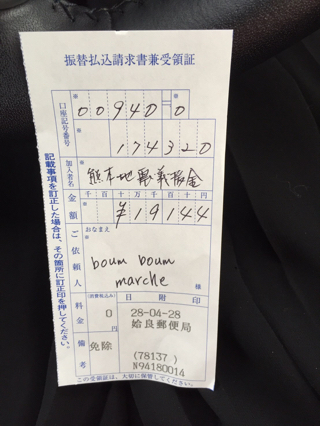 振替払込請求書兼受領証
口座記号番号
00940-0
174320
加入者名
熊本地震義援金
金額
千 百 十 万 千 百 十 円
¥19144
ご依頼人
おなまえ
boum boum
marche
様
料金
(消費税込み)
0
円
備考
免除
日附印
28-04-28
姶良郵便局
(78137)
N94180014
記載事項を訂正した場合は、その箇所に訂正印を押してください。
この受領証は、大切に保管してください。